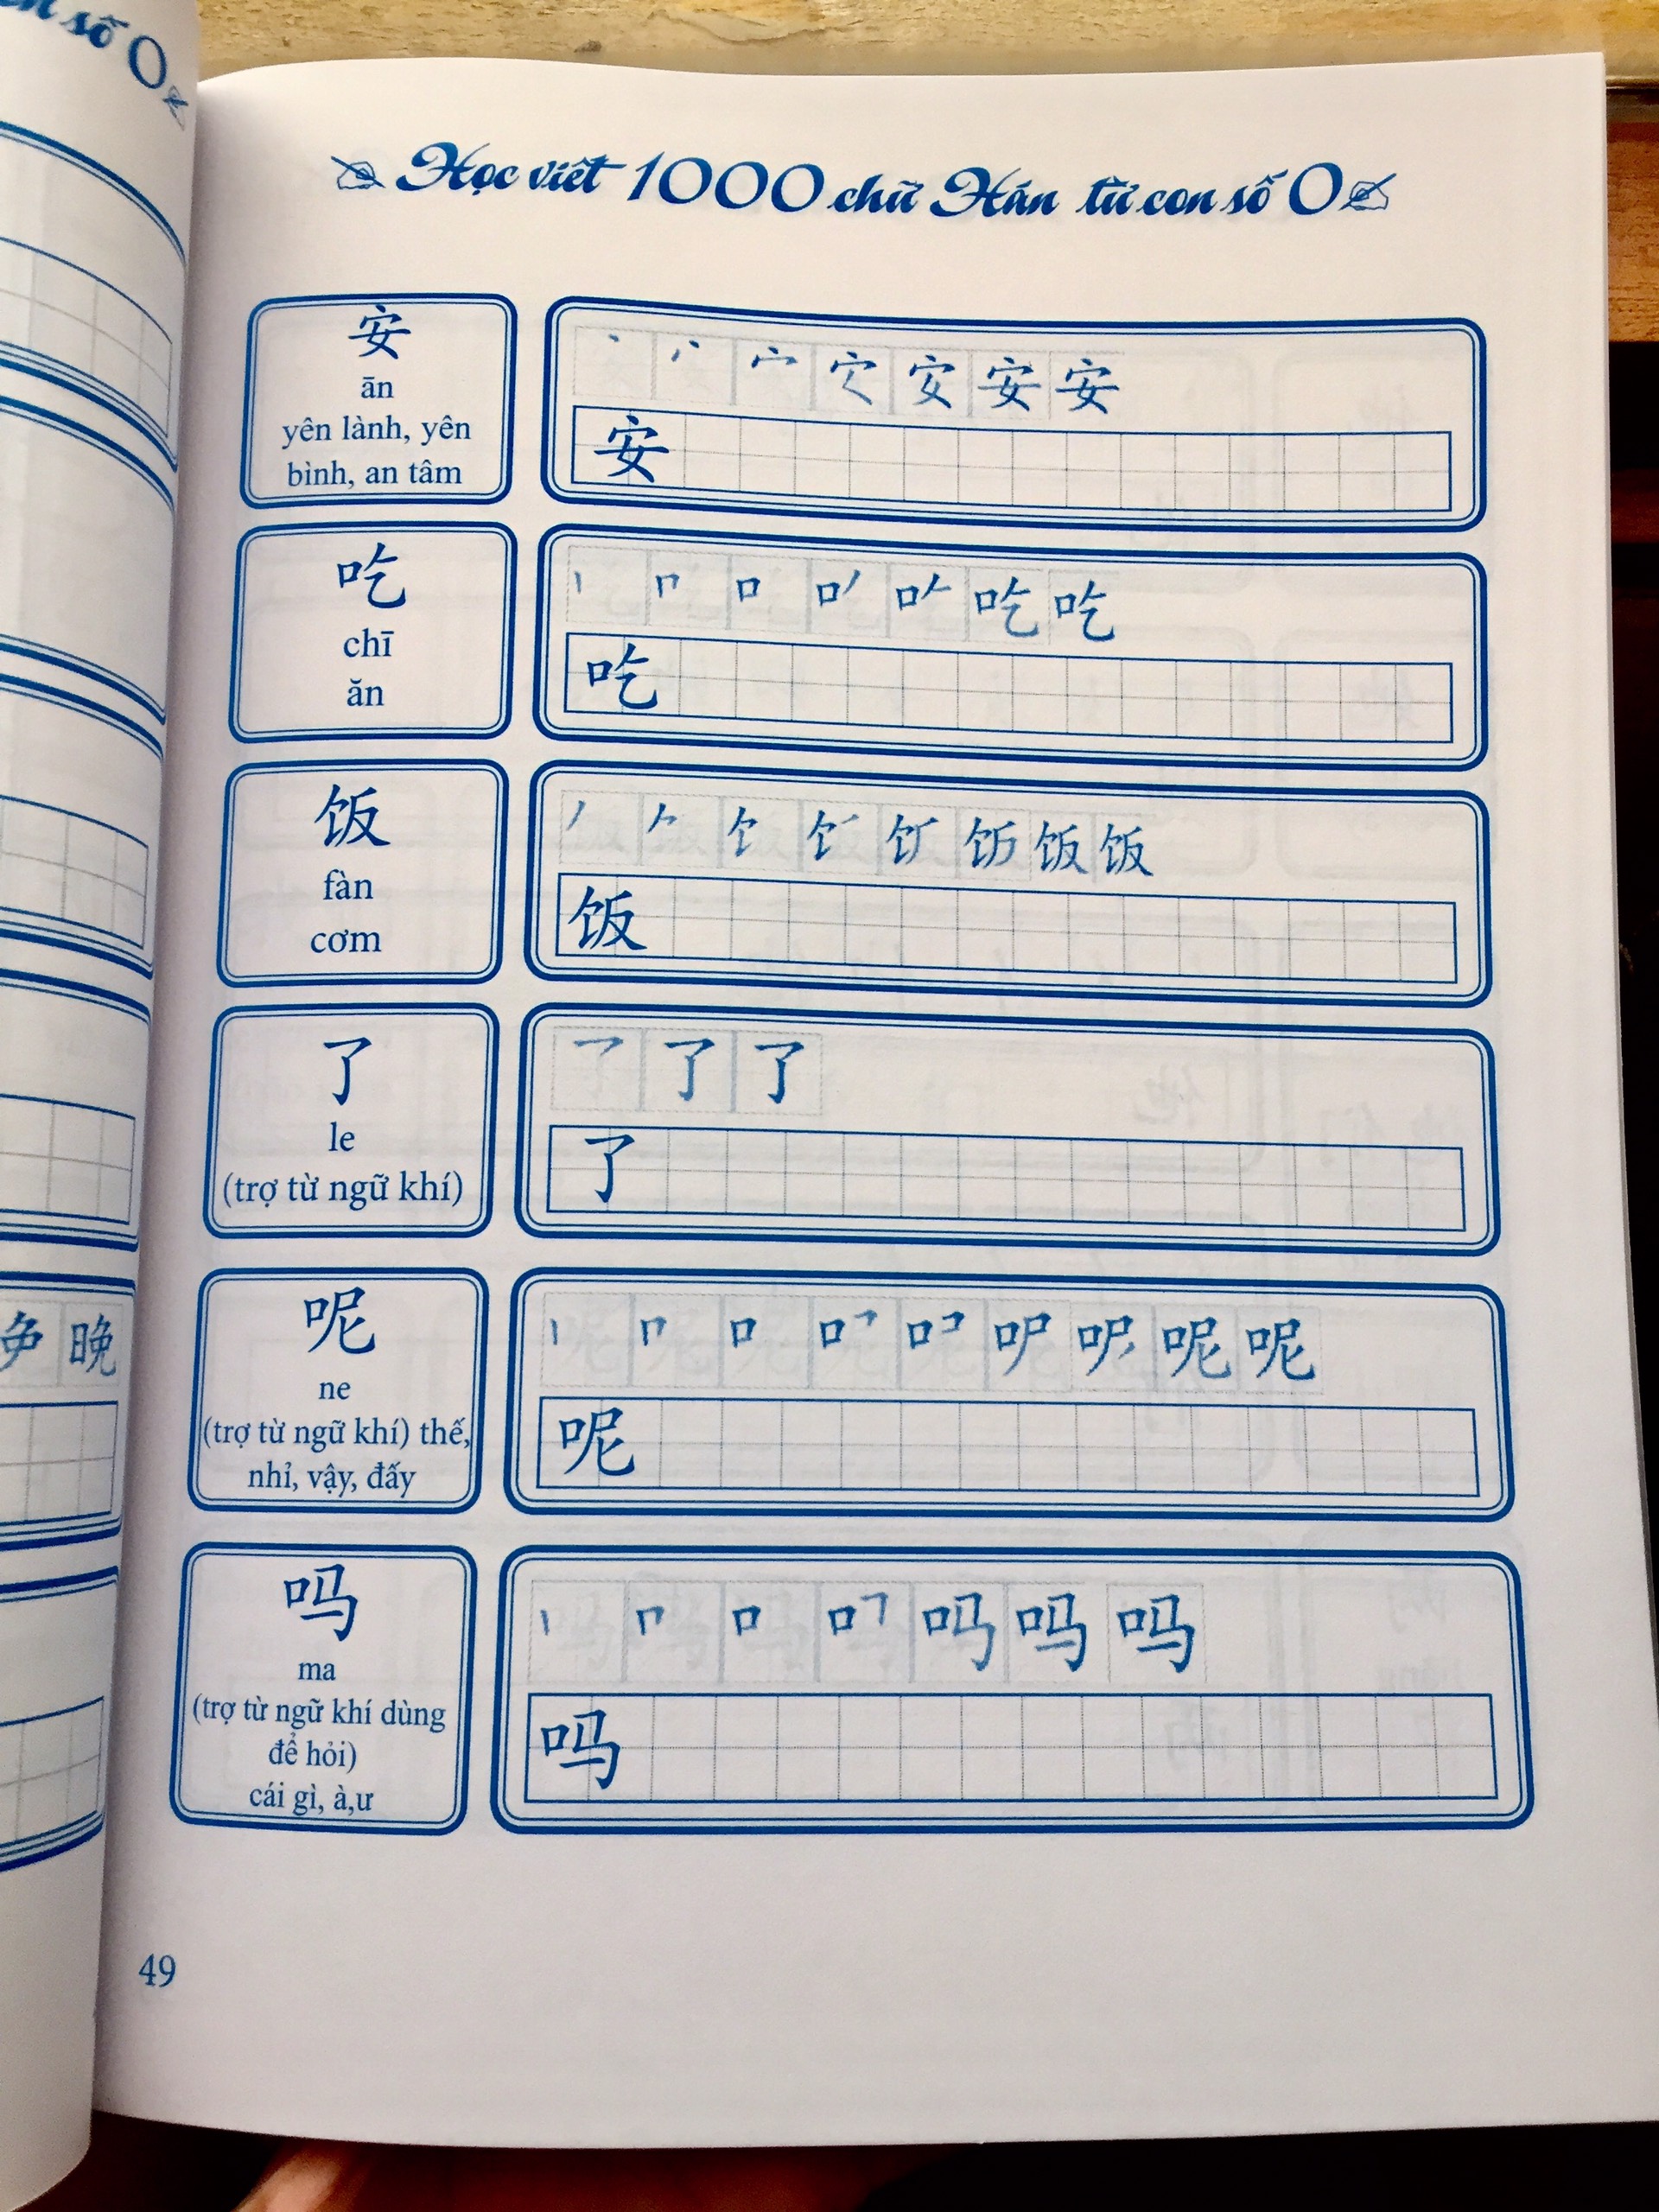 số 0
Học viết 1000 chữ Hán từ con số 0
安
ān
yên lành, yên
bình, an tâm
安 安 安
安
吃
chī
ăn
吃 吃
吃
饭
fàn
cơm
饭 饭
饭
了
le
(trợ từ ngữ khí)
了 了
了
呢
ne
(trợ từ ngữ khí) thế,
nhỉ, vậy, đấy
呢 呢
呢
晚
吗
ma
(trợ từ ngữ khí dùng
để hỏi)
cái gì, à,ư
吗 吗
吗
49